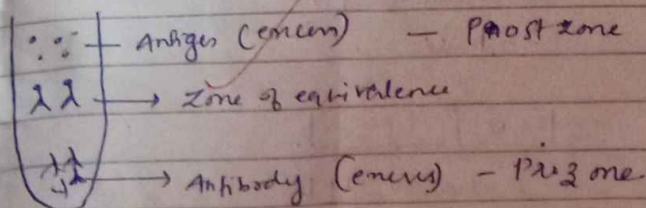 Antigen (excess) — Post zone
→ Zone of equivalence
→ Antibody (excess) - Prozone.